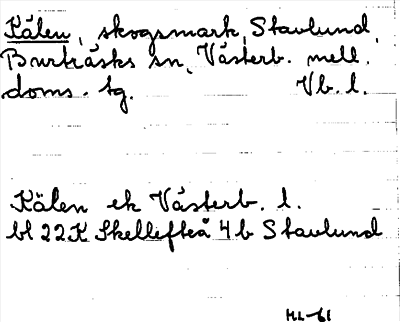 Kälen, skogsmark, Stavlund,
Burträsks sn, Västerb. mell.
doms. tg. Vb. l.
Kälen ek Västerb. l.
bl 22K Skellefteå 4b Stavlund
HL-61